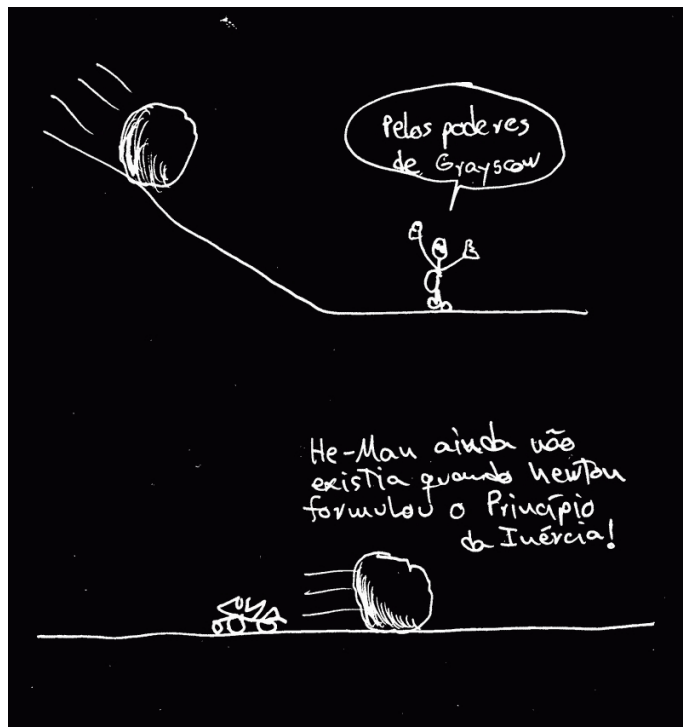 Pelos poderes
de Grayscow
He-Man ainda não
existia quando newton
formulou o Princípio
da Inércia!